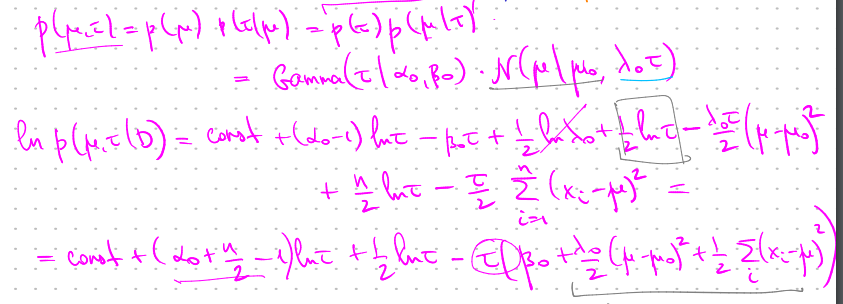 p(μ,τ) = p(μ) p(τ|μ) = p(τ) p(μ|τ)
= Gamma(τ|α₀,β₀) · N(μ|μ₀, λ₀τ)
ln p(μ,τ|D) = const + (α₀-1) lnτ - β₀τ + 1/2 lnλ₀ + 1/2 lnτ - λ₀τ/2 (μ-μ₀)²
+ n/2 lnτ - τ/2 Σ_{i=1}^{n} (x_i-μ)² =
= const + (α₀ + n/2 - 1) lnτ + 1/2 lnτ - τ(β₀ + λ₀/2 (μ-μ₀)² + 1/2 Σ_i (x_i-μ)²)